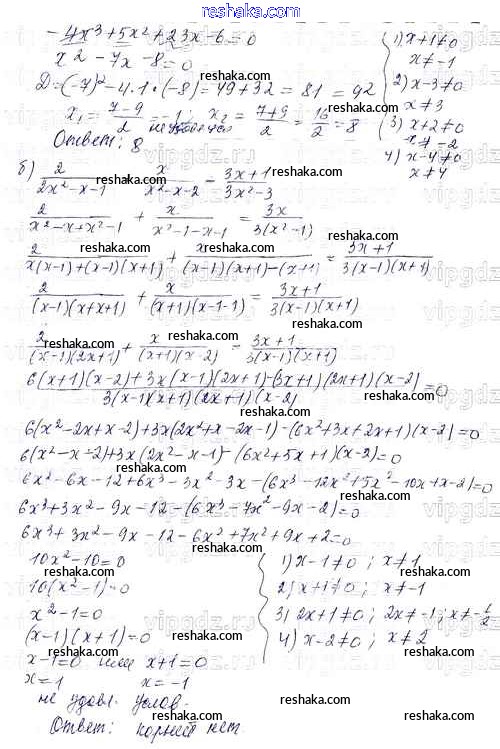 www.reshaka.com
-4x³+5x²+23x-6=0
x²-7x-8=0
D=(-7)²-4·1·(-8)=49+32=81=9²
x₁=(7-9)/2=-1; x₂=(7+9)/2=16/2=8
Ответ: 8
1) x+1≠0
x≠-1
2) x-3≠0
x≠3
3) x+2≠0
x≠-2
4) x-4≠0
x≠4
б) 2/(2x²-x-1) x/(x²-x-2) = (3x+1)/(3x²-3)
2/(x²-x+x²-1) + x/(x²-1-x-1) = 3x/(3(x²-1))
2/(x(x-1)+(x-1)(x+1)) + x/((x-1)(x+1)-(x+1)) = (3x+1)/(3(x-1)(x+1))
2/((x-1)(x+x+1)) + x/((x+1)(x-1-1)) = (3x+1)/(3(x-1)(x+1))
2/((x-1)(2x+1)) + x/((x+1)(x-2)) = (3x+1)/(3(x-1)(x+1))
(6(x+1)(x-2)+3x(x-1)(2x+1)-(3x+1)(2x+1)(x-2))/(3(x-1)(x+1)(2x+1)(x-2))=0
6(x²-2x+x-2)+3x(2x²+x-2x-1)-(6x²+3x+2x+1)(x-2)=0
6(x²-x-2)+3x(2x²-x-1)-(6x²+5x+1)(x-2)=0
6x²-6x-12+6x³-3x²-3x-(6x³-12x²+5x²-10x+x-2)=0
6x³+3x²-9x-12-(6x³-7x²-9x-2)=0
6x³+3x²-9x-12-6x²+7x²+9x+2=0
10x²-10=0
10(x²-1)=0
x²-1=0
(x-1)(x+1)=0
x-1=0 или x+1=0
x=1 x=-1
не удовл. услов.
Ответ: корней нет.
1) x-1≠0; x≠1
2) x+1≠0; x≠-1
3) 2x+1≠0; 2x≠-1; x≠-1/2
4) x-2≠0; x≠2
reshaka.com
vipgdz.ru